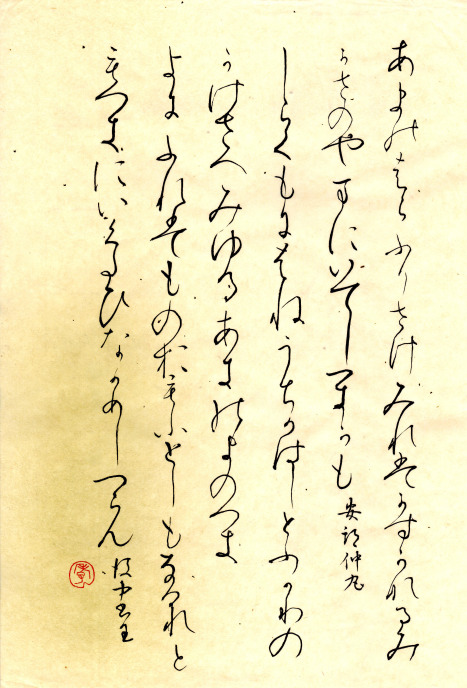 あまのはらふりさけみれはかすかなるみ
かさのやまにいてしつきかも 安部仲丸
しらくもにはねうちかはしとふかりの
かけさへみゆるあきのよのつき
よにふれはものおもふとしもなけれと
もつきにいくたひなかめしつらん 後中書王